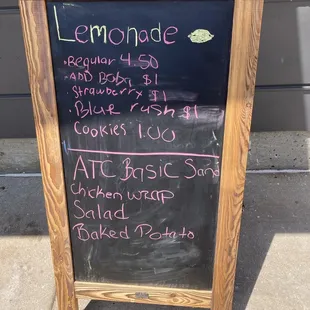 Lemonade
• Regular 4.50
• ADD Boba $1
• Strawberry $1
• Blue rush $1
Cookies 1.00
ATC Basic Sand
Chicken wrap
Salad
Baked Potato